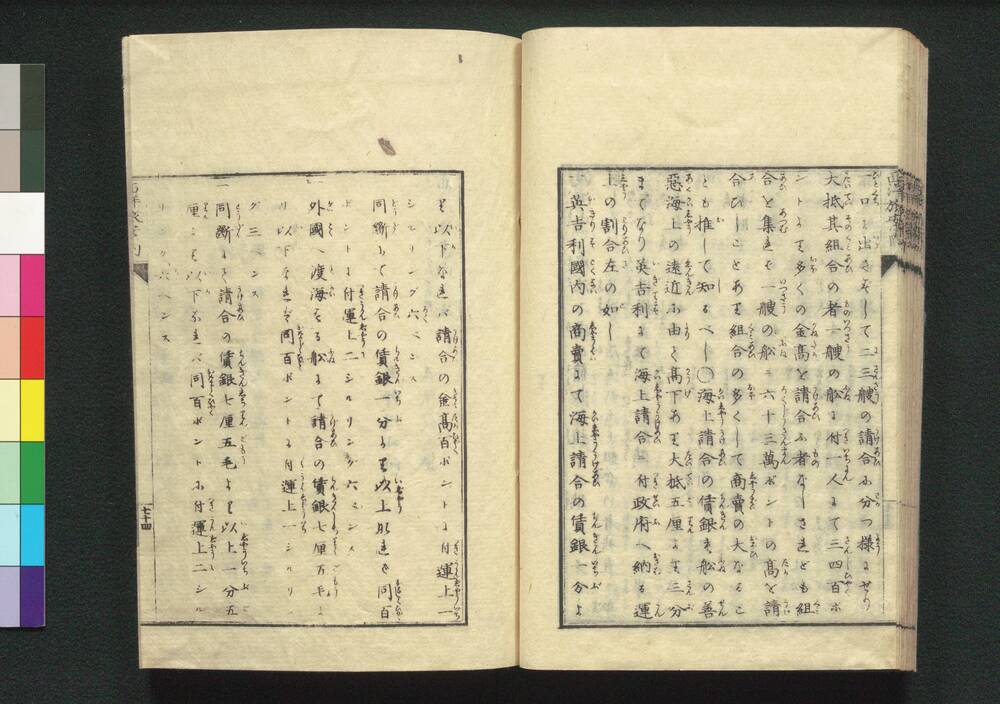 一口に出さずして二三艘の請合に分つ様にせり
大抵其組合の者一艘の舩に付一人にて三四百ポ
ントより多くの金高を請合ふ者なしされども組
合を集れば一艘の舩に六十三萬ポントの高を請
合ひしことあり組合の多くして商賣の大なるこ
とも推して知るべし〇海上請合の賃銀は舩の善
惡海上の遠近に由て高下あり大抵五厘より三分
までなり英吉利にて海上請合に付政府へ納る運
上の割合左の如し
一英吉利國内の商賣にて海上請合の賃銀一分よ
り以下なれバ請合の金高百ポントに付運上一
シルリング六ペンス
同斷にて請合の賃銀一分より以上なれば同百
ポントに付運上二シルリング六ペンス
一外國へ渡海する舩にて請合の賃銀七厘五毛よ
り以下なれば同百ポントに付運上一シルリ
ング三ペンス
一同斷にて請合の賃銀七厘五毛より以上一分五
厘より以下なれバ同百ポントに付運上二シル
リング六ペンス
七十四